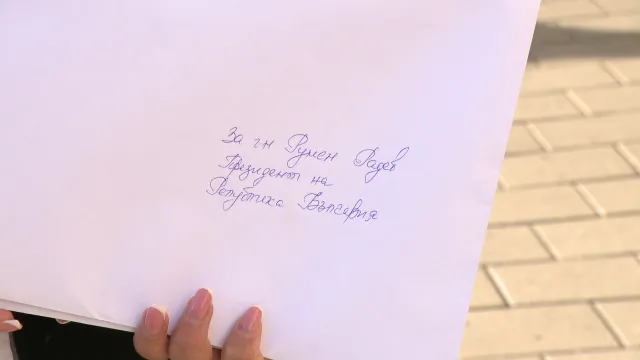 За гн Румен Радев
Президент на
Република България